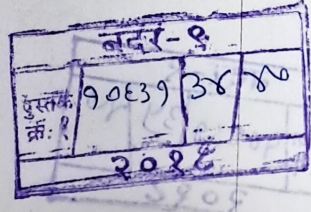 नदर-९
पुस्तक क्रं: १ १०६३१ ३४ ४०
२०१६